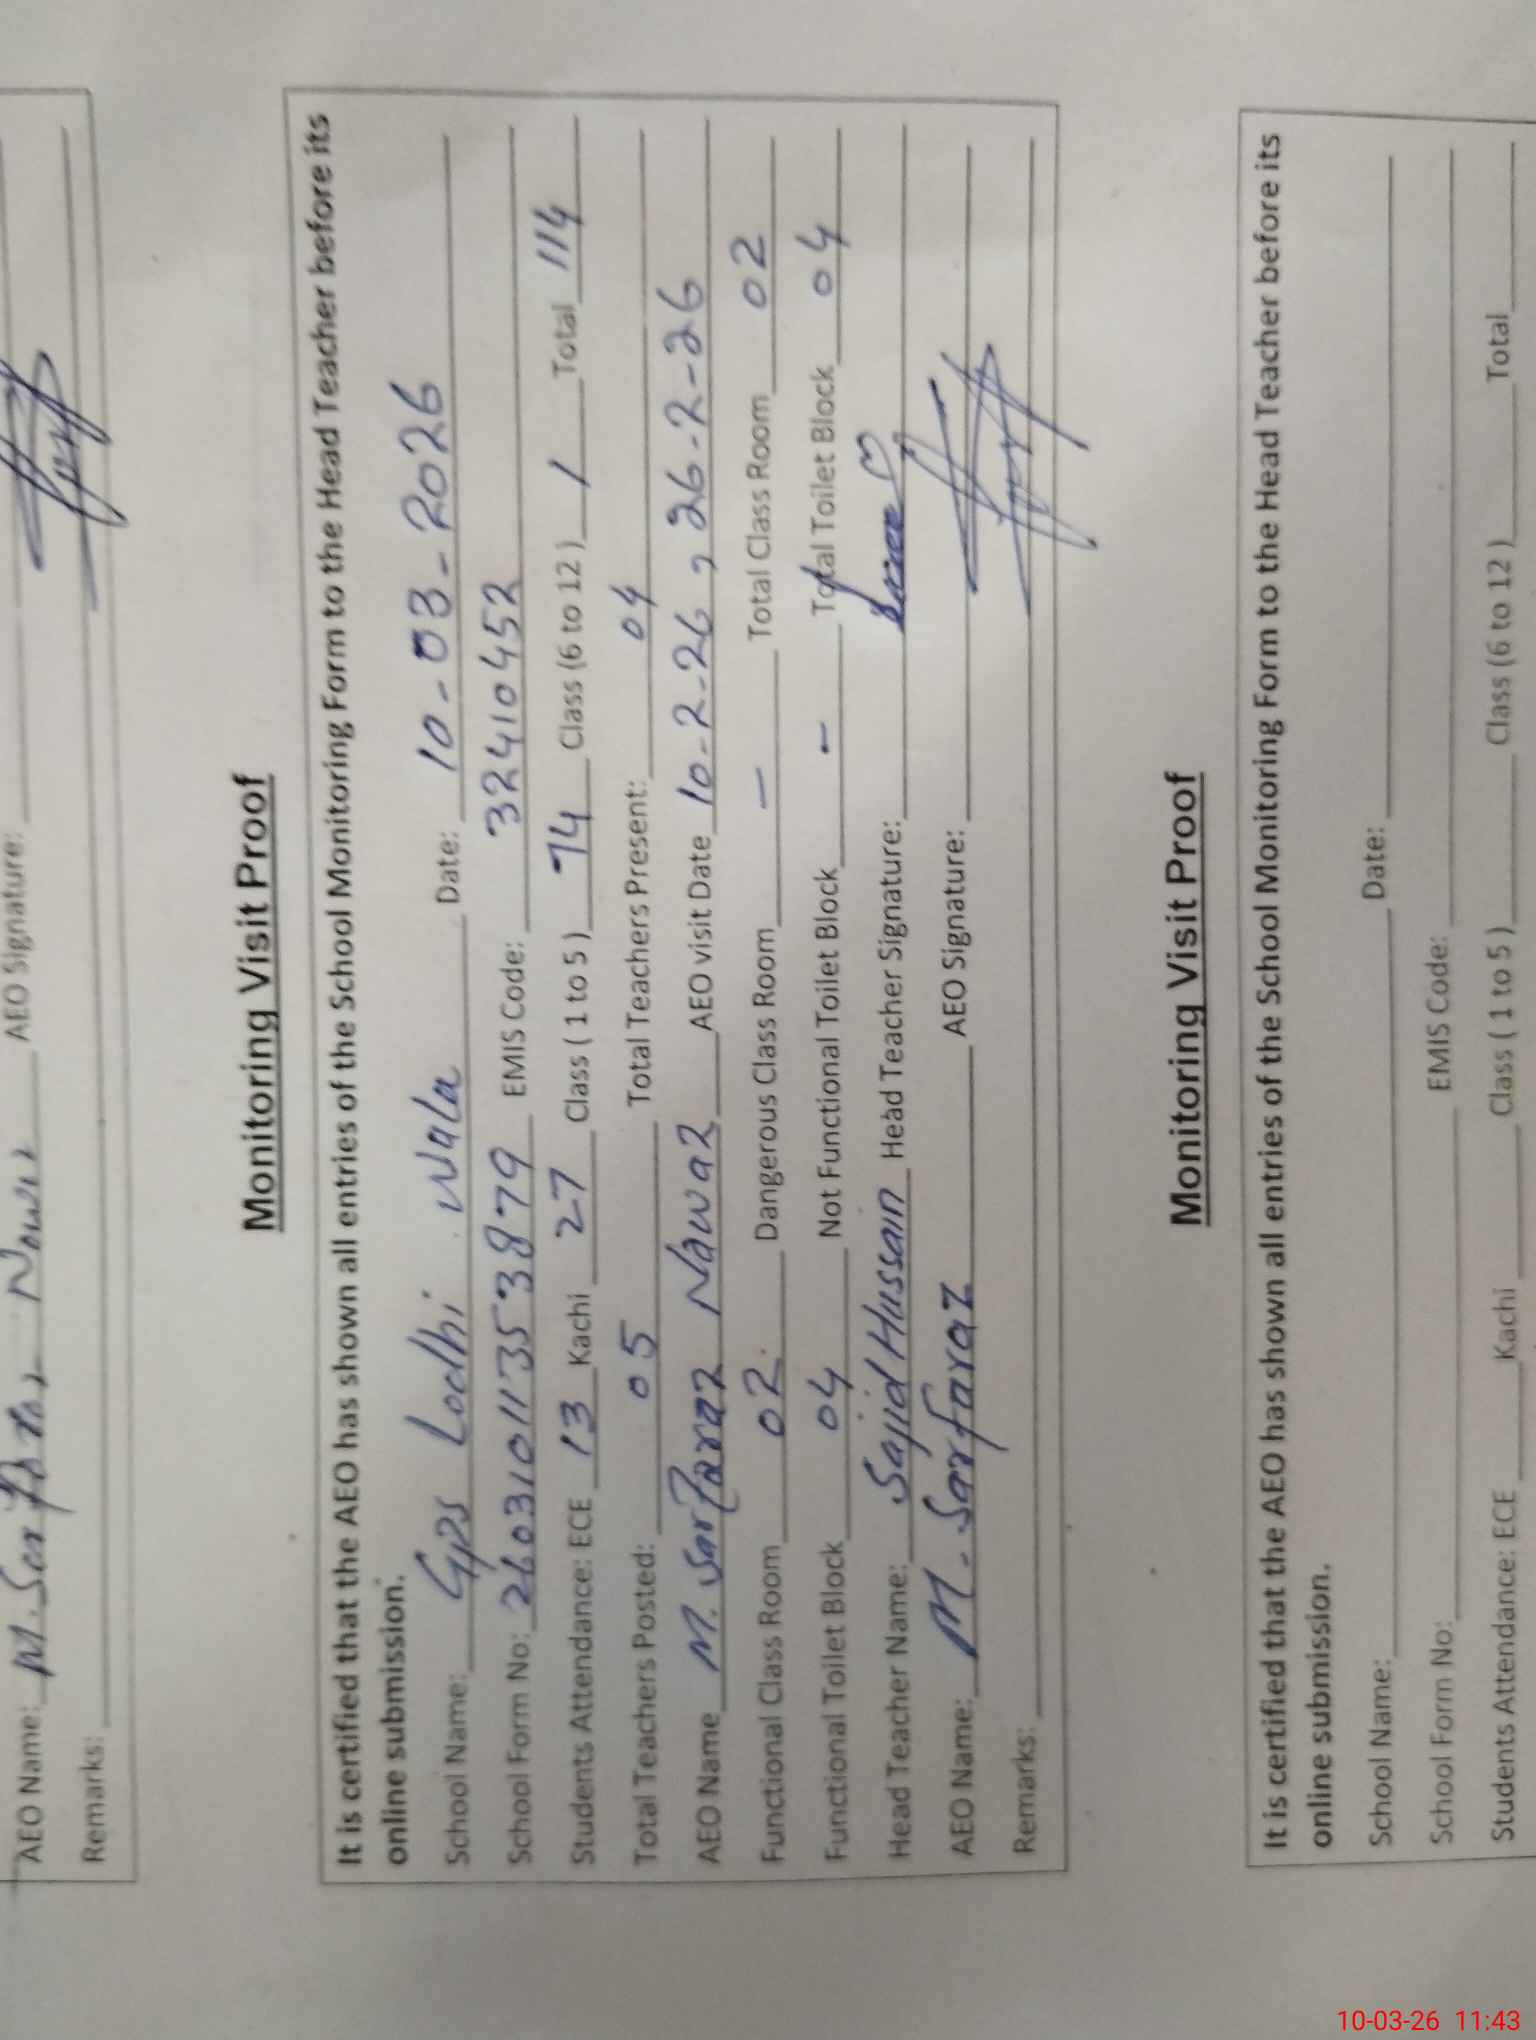 AEO Name: M. Sarfraz Nawaz AEO Signature:
Remarks:
Monitoring Visit Proof
It is certified that the AEO has shown all entries of the School Monitoring Form to the Head Teacher before its
online submission.
School Name: Gps Lodhi Wala Date: 10-03-2026
School Form No: 26031011353879 EMIS Code: 32410452
Students Attendance: ECE 13 Kachi 27 Class ( 1 to 5 ) 74 Class (6 to 12 ) / Total 114
Total Teachers Posted: 05 Total Teachers Present: 04
AEO Name M. Sarfaraz Nawaz AEO visit Date 10-2-26, 26-2-26
Functional Class Room 02 Dangerous Class Room - Total Class Room 02
Functional Toilet Block 04 Not Functional Toilet Block - Total Toilet Block 04
Head Teacher Name: Sajid Hussain Head Teacher Signature:
AEO Name: M. Sarfaraz AEO Signature:
Remarks:
Monitoring Visit Proof
It is certified that the AEO has shown all entries of the School Monitoring Form to the Head Teacher before its
online submission.
School Name: Date:
School Form No: EMIS Code:
Students Attendance: ECE Kachi Class ( 1 to 5 ) Class (6 to 12 ) Total
10-03-26 11:43